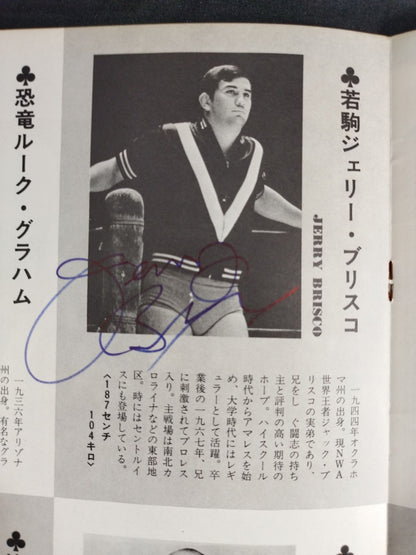 ♣若駒ジェリー・ブリスコ
JERRY BRISCO
一九四四年オクラホ
マ州の出身。現NWA
世界王者ジャック・ブ
リスコの実弟であり、
兄をしのぐ闘志の持ち
主と評判の高い期待の
ホープ。ハイスクール
時代からアマレスを始
め、大学時代にはレギ
ュラーとして活躍。卒
業後の一九六七年、兄
に刺激されてプロレス
入り。主戦場は南北カ
ロライナなどの東部地
区。時にはセントルイ
スにも登場している。
〈187センチ
104キロ〉
♣恐竜ルーク・グラハム
一九三六年アリゾナ
州の出身。有名なグラ